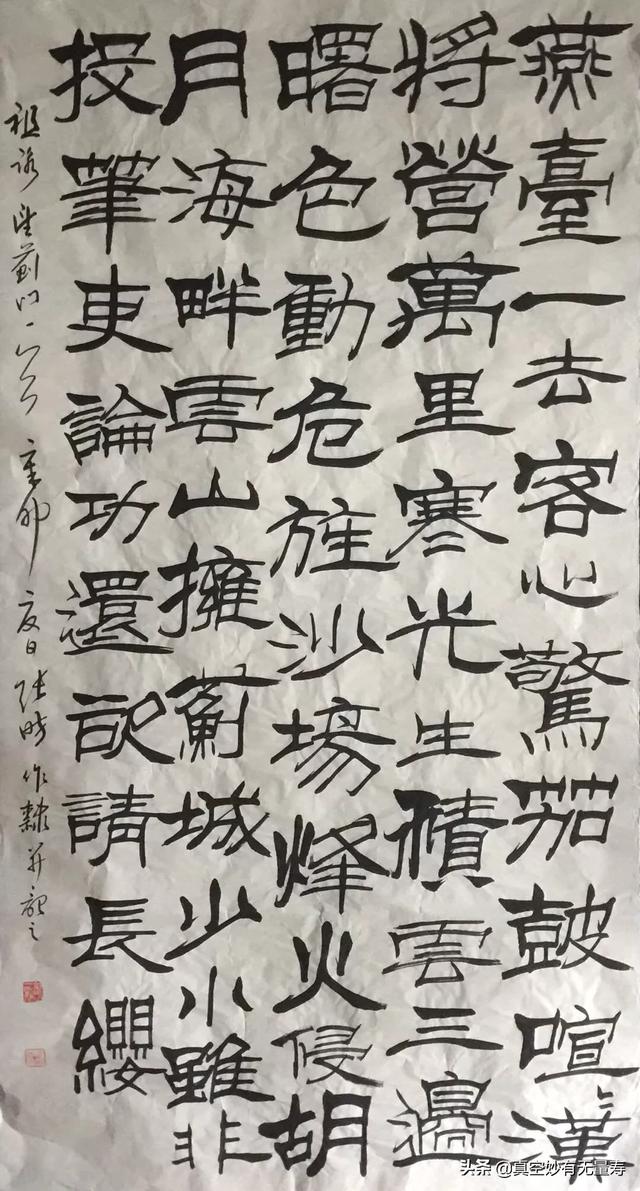 燕臺一去客心驚笳鼓喧〻漢
將營萬里寒光生積雲三邊
曙色動危旌沙場烽火侵胡
月海畔雲山擁薊城少小雖非
投筆吏論功還欲請長纓
祖詠望薊門一首 卯夏日張作隸并記之
头条 @真空妙有无量寿